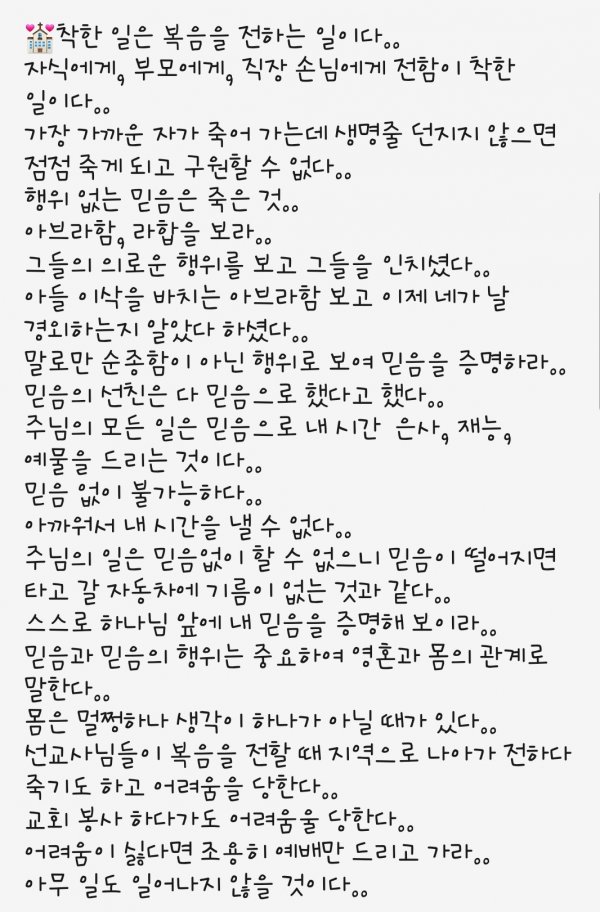 💒착한 일은 복음을 전하는 일이다。。
자식에게, 부모에게, 직장 손님에게 전함이 착한
일이다。。
가장 가까운 자가 죽어 가는데 생명줄 던지지 않으면
점점 죽게 되고 구원할 수 없다。。
행위 없는 믿음은 죽은 것。。
아브라함, 라합을 보라。。
그들의 의로운 행위를 보고 그들을 인치셨다。。
아들 이삭을 바치는 아브라함 보고 이제 네가 날
경외하는지 알았다 하셨다。。
말로만 순종함이 아닌 행위로 보여 믿음을 증명하라。。
믿음의 선친은 다 믿음으로 했다고 했다。。
주님의 모든 일은 믿음으로 내 시간  은사, 재능,
예물을 드리는 것이다。。
믿음 없이 불가능하다。。
아까워서 내 시간을 낼 수 없다。。
주님의 일은 믿음없이 할 수 없으니 믿음이 떨어지면
타고 갈 자동차에 기름이 없는 것과 같다。。
스스로 하나님 앞에 내 믿음을 증명해 보이라。。
믿음과 믿음의 행위는 중요하여 영혼과 몸의 관계로
말한다。。
몸은 멀쩡하나 생각이 하나가 아닐 때가 있다。。
선교사님들이 복음을 전할 때 지역으로 나아가 전하다
죽기도 하고 어려움을 당한다。。
교회 봉사 하다가도 어려움울 당한다。。
어려움이 싫다면 조용히 예배만 드리고 가라。。
아무 일도 일어나지 않을 것이다。。